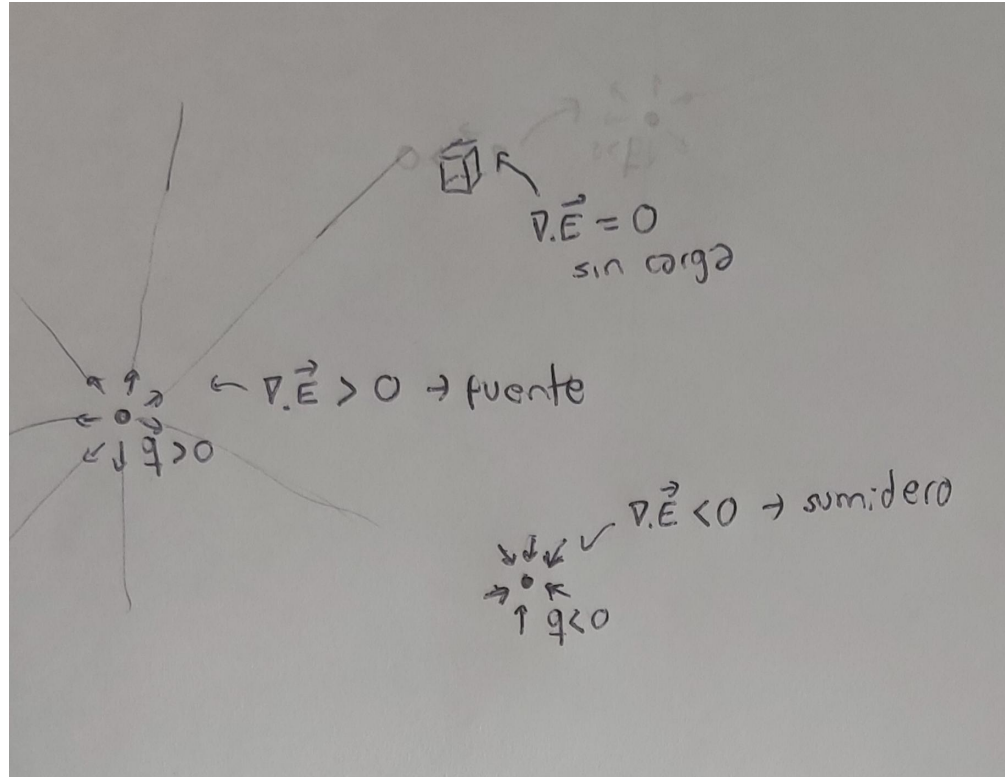 ∇.E⃗ = 0
sin carga
← ∇.E⃗ > 0 → fuente
q > 0
∇.E⃗ < 0 → sumidero
q < 0